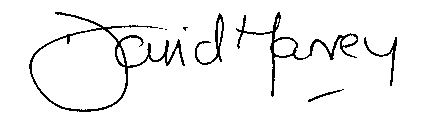 David Harvey